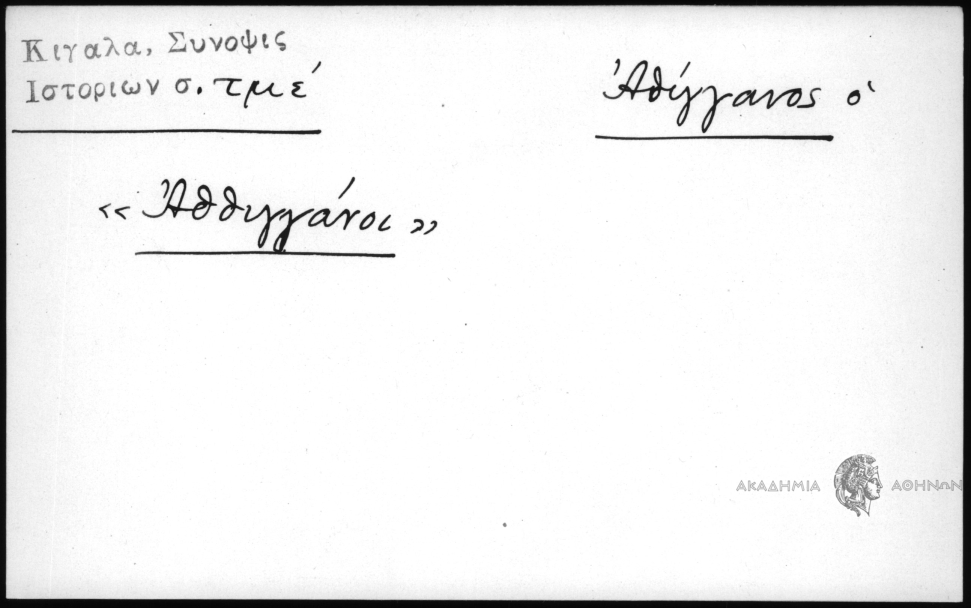 Κιγαλα, Συνοψις
Ιστοριων σ. τμέ
Ἀθίγγανος ὁ
«Ἀθθιγγάνοι»
ΑΚΑΔΗΜΙΑ ΑΘΗΝΩΝ